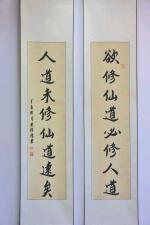 欲修仙道必修人道
人道未修仙道遠矣